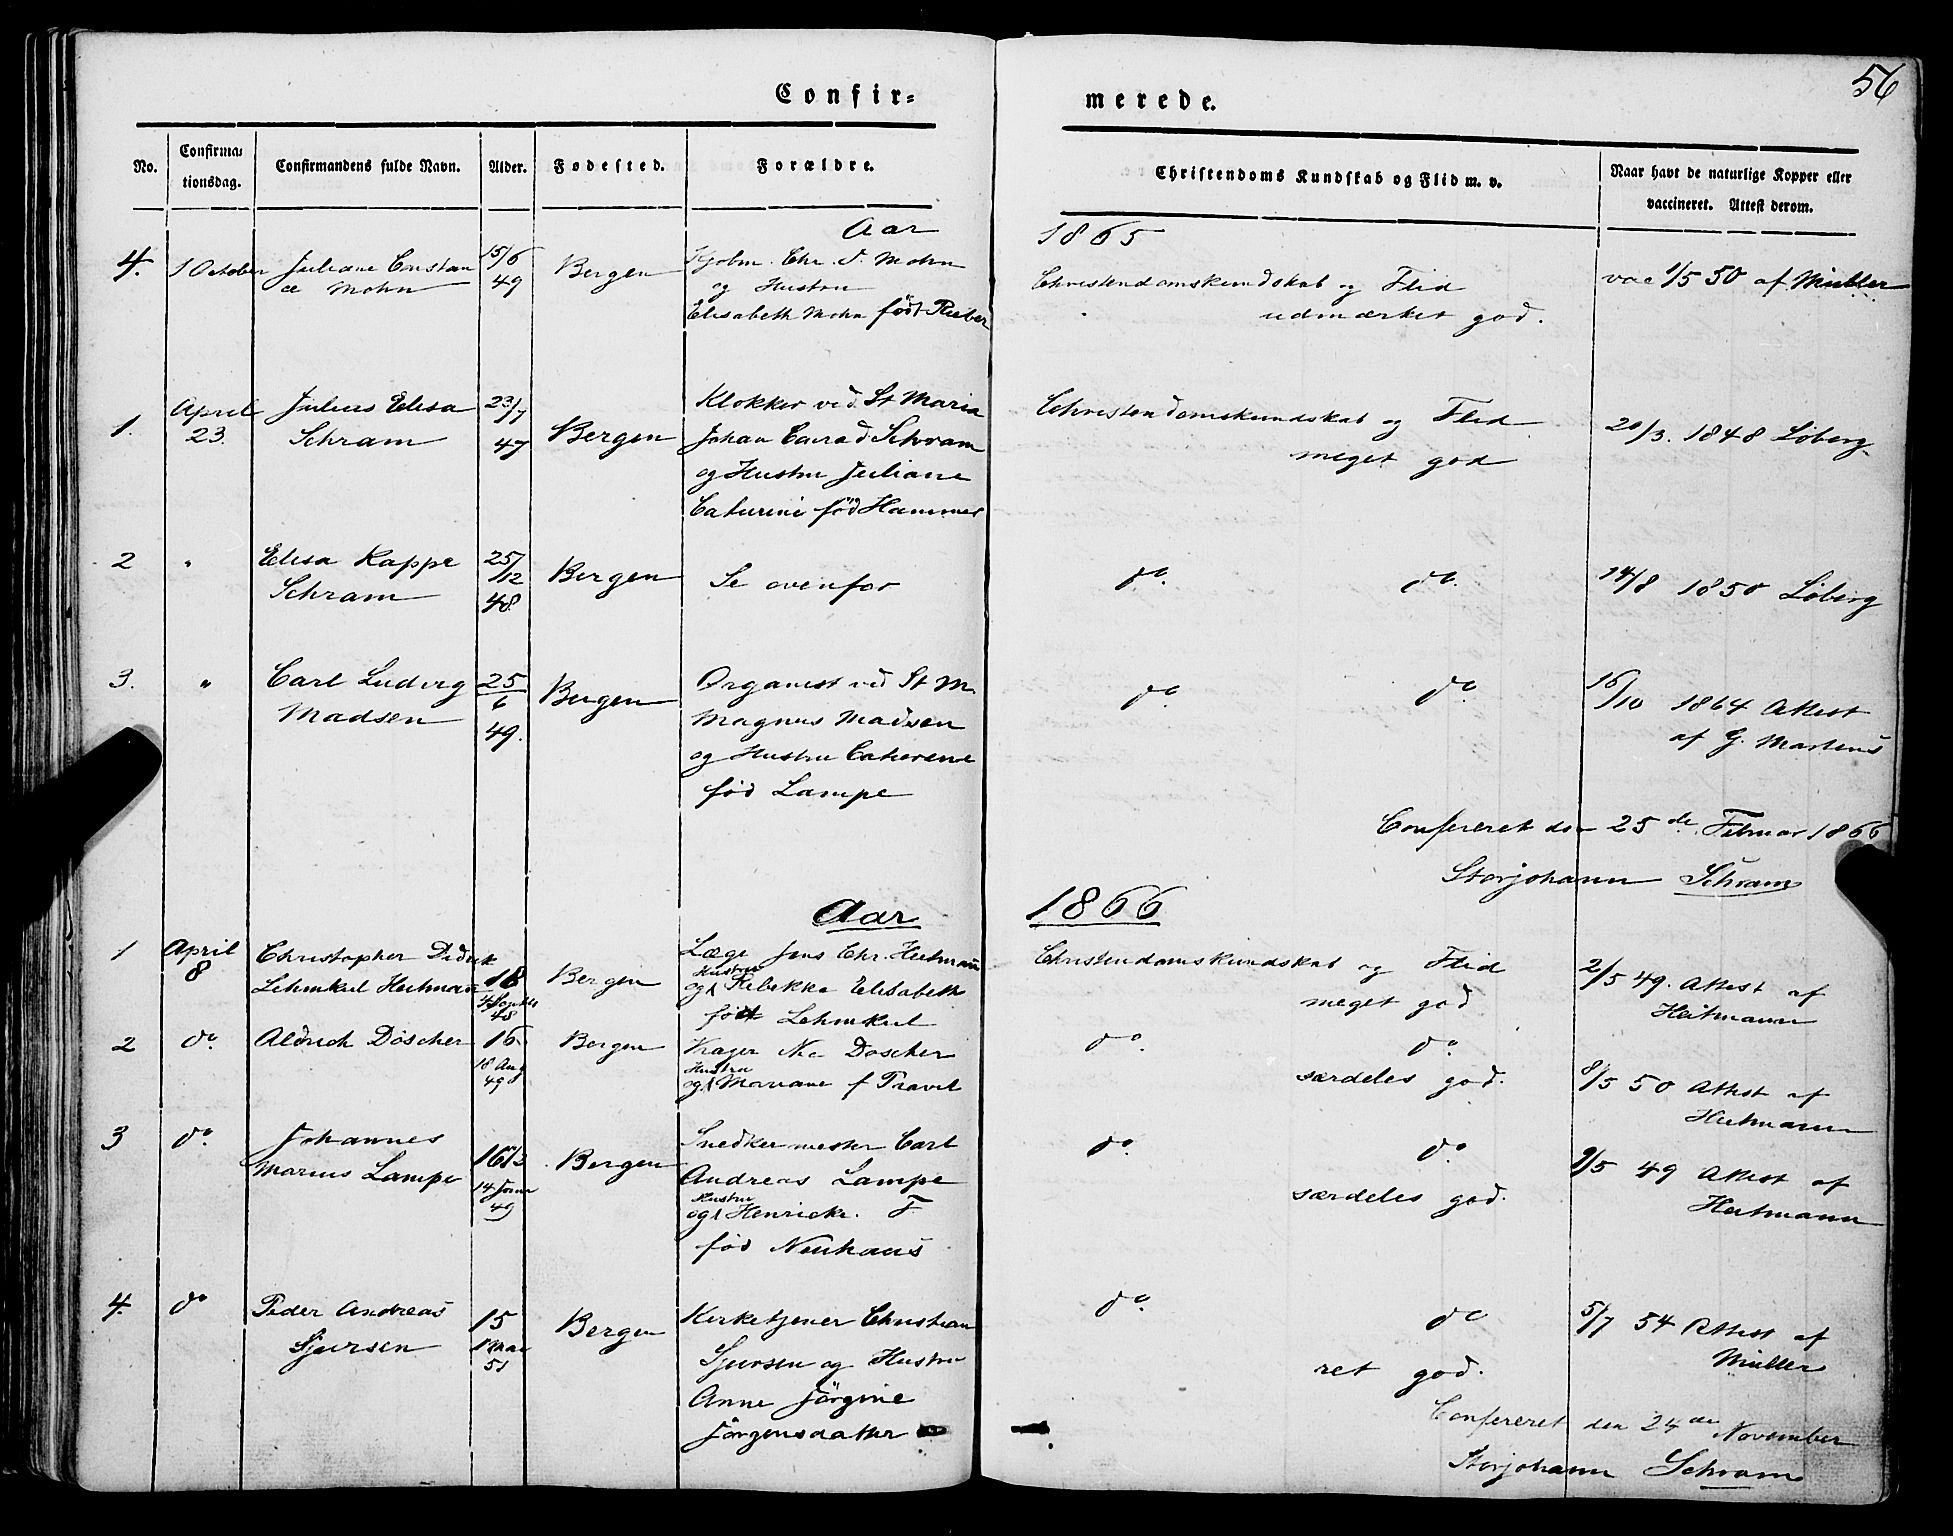 56
Confir=
merede.
No.
Confirma=
tionsdag.
Confirmandens fulde Navn.
Alder.
Fødested.
Forældre.
Christendoms Kundskab og Flid m. v.
Naar havt de naturlige Kopper eller
vaccineret. Attest derom.
Aar 1865
4. 1 October Juliane Constan 15/6 Bergen Kjøbm. Chr. D. Mohn Christendomskundskab og Flid vac 1/5 50 af Müller
ce Mohn 49 og Hustru udmærket god.
Elisabeth Mohn født Rieber
1. April Julius Elisa 23/7 Bergen Klokker ved St Maria Christendomskundskab og Flid 20/3. 1848 Løberg
23. Schram 47 Johan Conrad Schram meget god
og Hustru Juliane
Cathrine fød Hammer
2 " Elisa Kappe 25/12 Bergen Se ovenfor do. do. 14/8 1850 Løberg
Schram 48
3. " Carl Ludvig 25/6 Bergen Organist ved St M. do. do 16/10 1864 Attest
Madsen 49. Magnus Madsen af G. Martens
og Hustru Catherine
fød Lampe
Confereret den 25de Februar 1866
Storjohann Schram
Aar 1866
1 April Christopher Didrik 18 Bergen Læge Jens Chr. Heitmann Christendomskundskab og Flid 2/5 49. Attest af
8 Lehmkul Heitmann 4 Septbr 48 og Hustru Rebekka Elisabeth meget god Heitmann
født Lehmkul
2 do Aldrich Döscher 16 Bergen Döscher do. do. 8/5 50 Attest af
18 Aug 49 og Hustru Mariane f særdeles god. Heitmann
3 do. Johannes Bergen Snedkermester Carl do. do. 9/5 49 Attest af
Marius Lampe 14 Janu 49 Andreas Lampe særdeles god. Heitmann
og Hustru Henricke. F.
fød Neuhaus
4. do Peder Andreas 15 Bergen Kirketjener Christian do. do 5/7 54 Attest af
Sjursen 1 Mai 51 Sjursen og Hustru ret god. Müller
Anne Jörgine
Jörgensdatter
Confereret den 24de November
Storjohann Schram